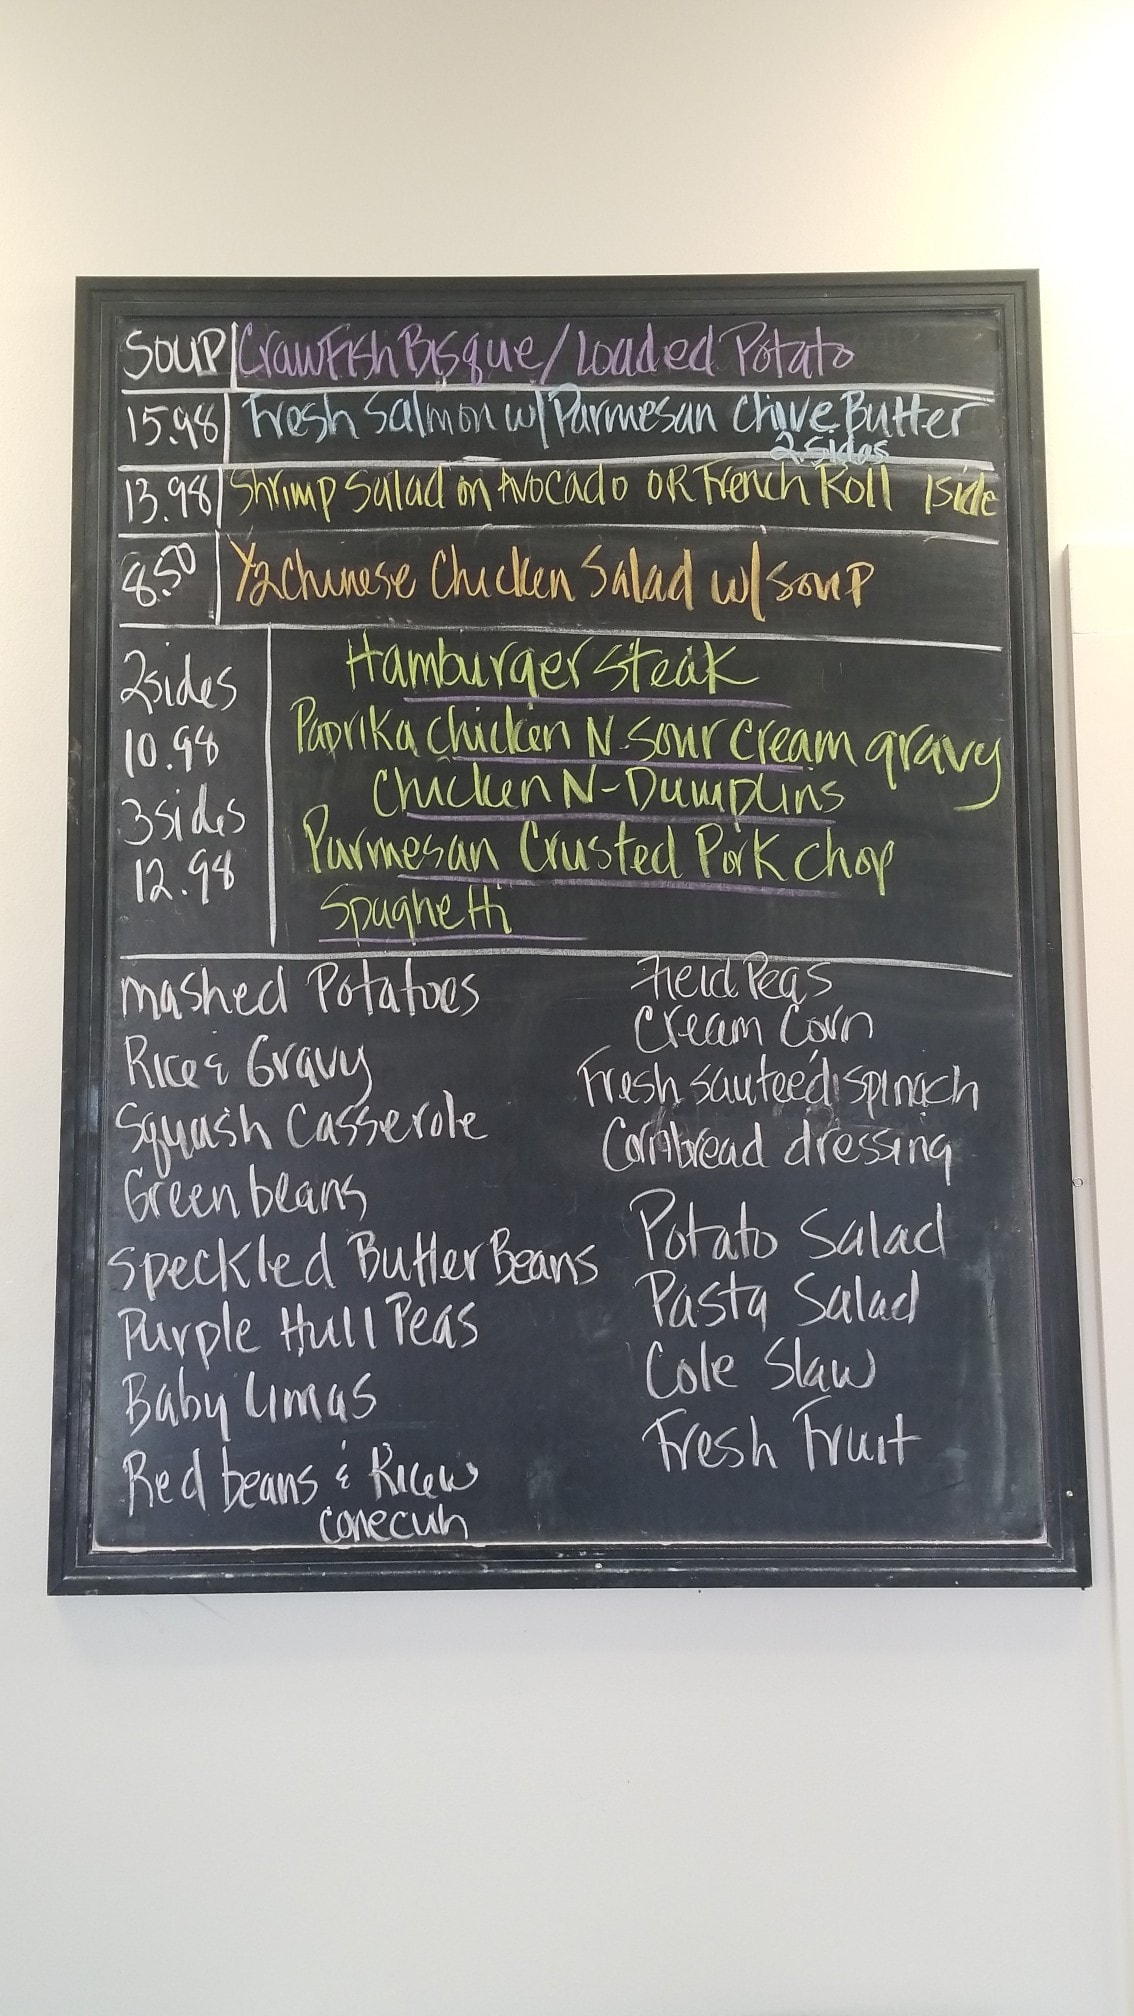 SOUP CrawFish Bisque / Loaded Potato
15.98 Fresh Salmon w/ Parmesan Chive Butter
2 Sides
13.98 Shrimp Salad on Avocado OR French Roll 1 side
8.50 1/2 Chinese Chicken Salad w/ Soup
2 sides
10.98
3 sides
12.98
Hamburger Steak
Paprika Chicken N-Sour Cream gravy
Chicken N-Dumplins
Parmesan Crusted Pork Chop
Spaghetti
mashed Potatoes
Rice & Gravy
Squash Casserole
Green beans
Speckled Butter Beans
Purple Hull Peas
Baby Limas
Red beans & Rice w
conecuh
Field Peas
Cream Corn
Fresh sauteed spinach
Cornbread dressing
Potato Salad
Pasta Salad
Cole Slaw
Fresh Fruit